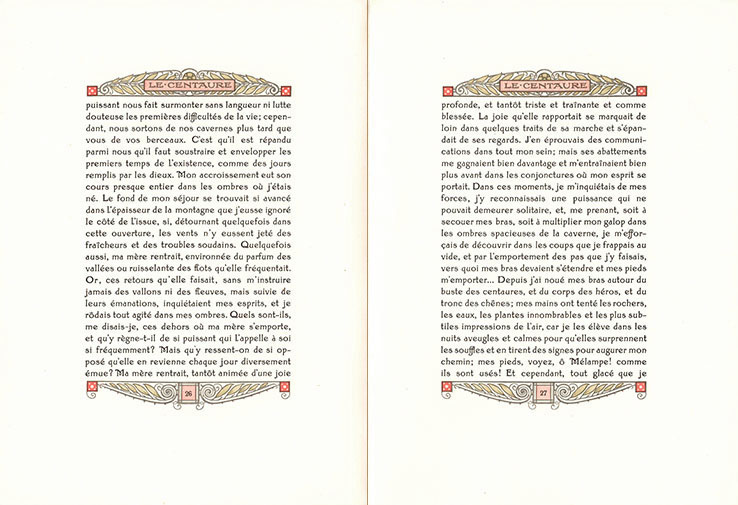 LE·CENTAURE
puissant nous fait surmonter sans langueur ni lutte
douteuse les premières difficultés de la vie; cepen-
dant, nous sortons de nos cavernes plus tard que
vous de vos berceaux. C'est qu'il est répandu
parmi nous qu'il faut soustraire et envelopper les
premiers temps de l'existence, comme des jours
remplis par les dieux. Mon accroissement eut son
cours presque entier dans les ombres où j'étais
né. Le fond de mon séjour se trouvait si avancé
dans l'épaisseur de la montagne que j'eusse ignoré
le côté de l'issue, si, détournant quelquefois dans
cette ouverture, les vents n'y eussent jeté des
fraîcheurs et des troubles soudains. Quelquefois
aussi, ma mère rentrait, environnée du parfum des
vallées ou ruisselante des flots qu'elle fréquentait.
Or, ces retours qu'elle faisait, sans m'instruire
jamais des vallons ni des fleuves, mais suivie de
leurs émanations, inquiétaient mes esprits, et je
rôdais tout agité dans mes ombres. Quels sont-ils,
me disais-je, ces dehors où ma mère s'emporte,
et qu'y règne-t-il de si puissant qui l'appelle à soi
si fréquemment? Mais qu'y ressent-on de si op-
posé qu'elle en revienne chaque jour diversement
émue? Ma mère rentrait, tantôt animée d'une joie
26
LE·CENTAURE
profonde, et tantôt triste et traînante et comme
blessée. La joie qu'elle rapportait se marquait de
loin dans quelques traits de sa marche et s'épan-
dait de ses regards. J'en éprouvais des communi-
cations dans tout mon sein; mais ses abattements
me gagnaient bien davantage et m'entraînaient bien
plus avant dans les conjonctures où mon esprit se
portait. Dans ces moments, je m'inquiétais de mes
forces, j'y reconnaissais une puissance qui ne
pouvait demeurer solitaire, et, me prenant, soit à
secouer mes bras, soit à multiplier mon galop dans
les ombres spacieuses de la caverne, je m'effor-
çais de découvrir dans les coups que je frappais au
vide, et par l'emportement des pas que j'y faisais,
vers quoi mes bras devaient s'étendre et mes pieds
m'emporter... Depuis j'ai noué mes bras autour du
buste des centaures, et du corps des héros, et du
tronc des chênes; mes mains ont tenté les rochers,
les eaux, les plantes innombrables et les plus sub-
tiles impressions de l'air, car je les élève dans les
nuits aveugles et calmes pour qu'elles surprennent
les souffles et en tirent des signes pour augurer mon
chemin; mes pieds, voyez, ô Mélampe! comme
ils sont usés! Et cependant, tout glacé que je
27